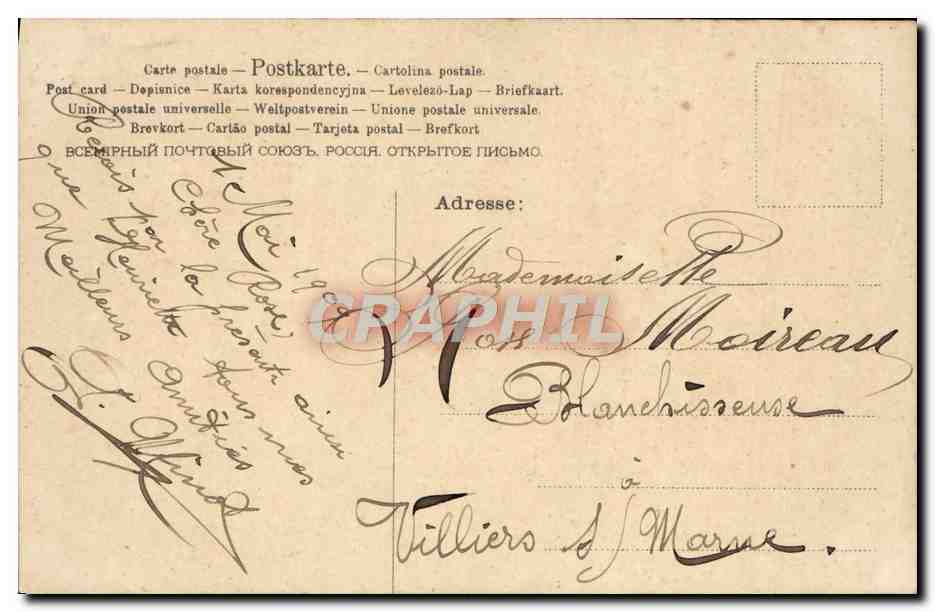 Carte postale — Postkarte. — Cartolina postale.
Post card — Dopisnice — Karta korespondencyjna — Levelező-Lap — Briefkaart.
Union postale universelle — Weltpostverein — Unione postale universale.
Brevkort — Cartão postal — Tarjeta postal — Brefkort
ВСЕМІРНЫЙ ПОЧТОВЫЙ СОЮЗЪ. РОССІЯ. ОТКРЫТОЕ ПИСЬМО.
1 Mai 1909
Chère Rose,
Reçois par la présente ainsi
que tous mes
Meilleurs Amitiés
Adresse:
Mademoiselle
Rose Moireau
Blanchisseuse
à
Villiers s/ Marne.
CRAPHIL